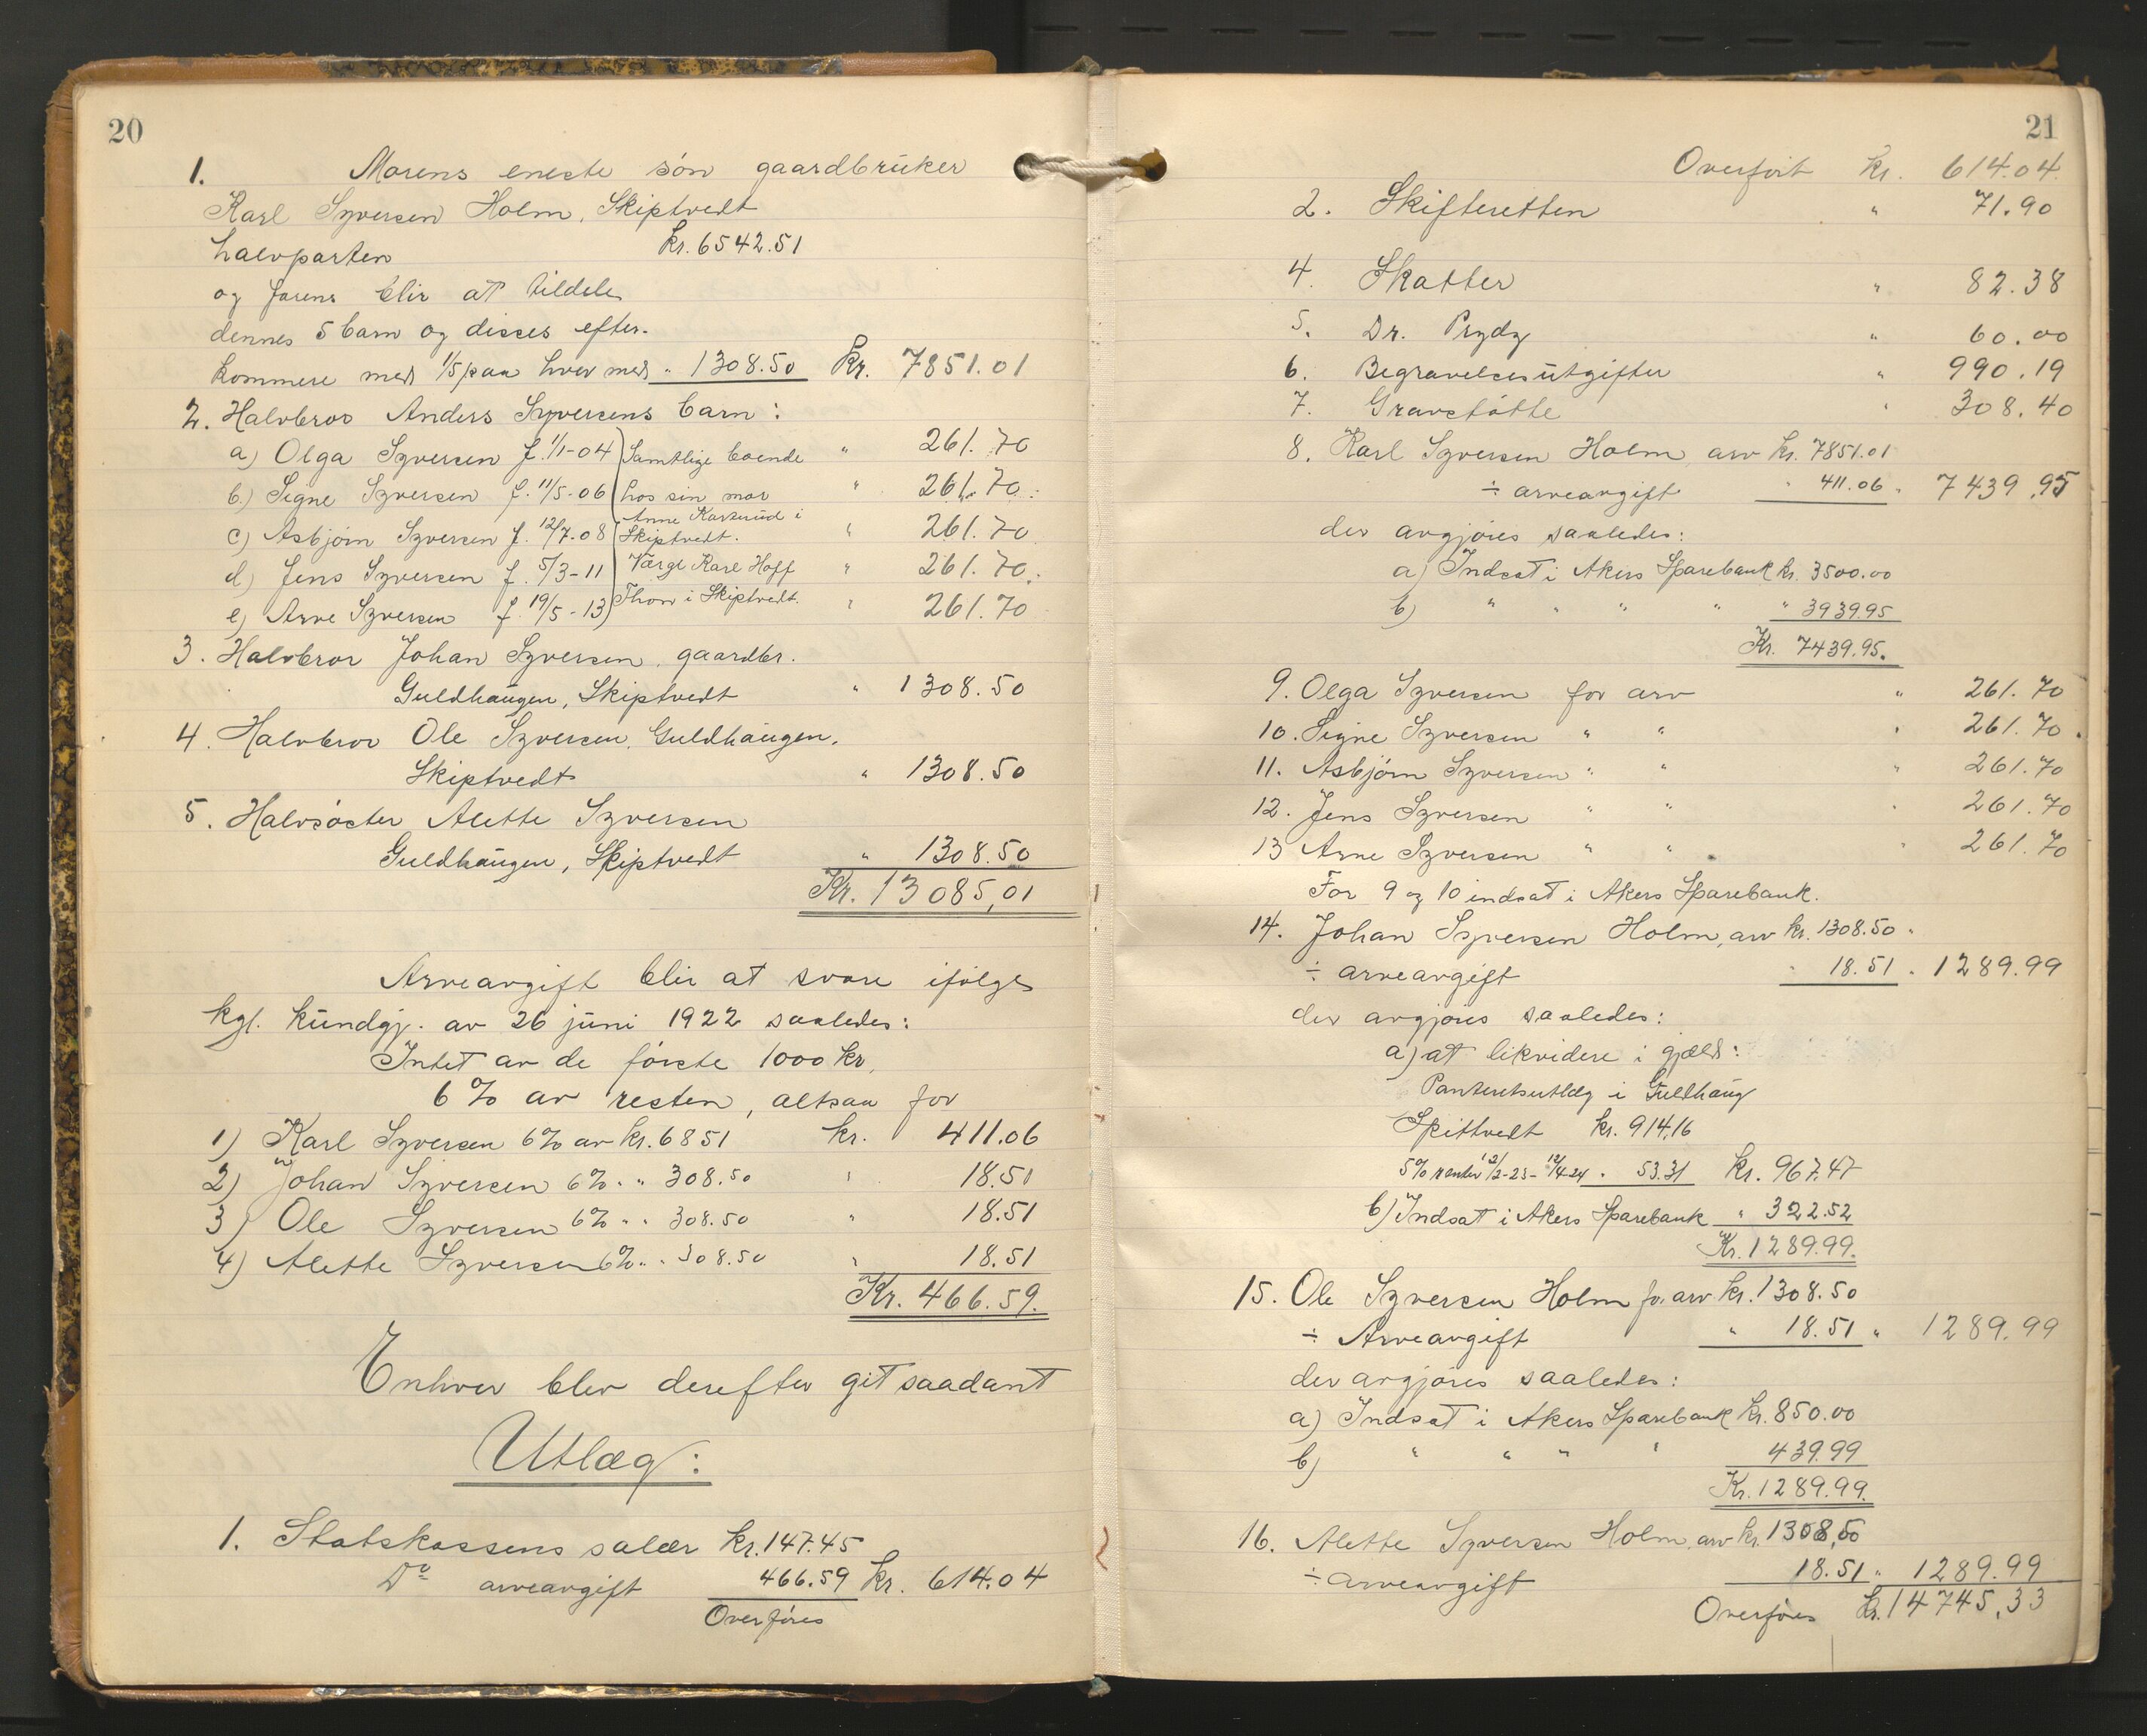 20
1. Morens eneste søn gaardbruker
Karl Syversen Holm, Skiptvedt
halvparten kr. 6542.51
og farens blir at tildele
dennes 5 barn og disses efter-
kommere med 1/5 paa hver med " 1308.50 Kr. 7851.01
2. Halvbror Anders Syversens barn:
a) Olga Syversen f. 1/1-04 Samtlige boende " 261.70
b) Signe Syversen f. 11/5-06 hos sin mor " 261.70
Anne Karsrud i
c) Asbjørn Syversen f. 12/7-08 Skiptvedt. " 261.70
d) Jens Syversen f. 5/3-11 Værge Karl Hoff " 261.70
e) Arne Syversen f. 19/5-13 Thon i Skiptvedt. " 261.70
3. Halvbror Johan Syversen, gaardbr.
Guldhaugen, Skiptvedt " 1308.50
4. Halvbror Ole Syversen, Guldhaugen,
Skiptvedt " 1308.50
5. Halvsøster Alette Syversen
Guldhaugen, Skiptvedt " 1308.50
Kr. 13085,01
Arveavgift blir at svare ifølge
kgl. kundgj. av 26 juni 1922 saaledes:
Intet av de første 1000 kr,
6% av resten, altsaa for
1) Karl Syversen 6% av kr. 6851 kr. 411.06
2) Johan Syversen 6% " " 308.50 " 18.51
3) Ole Syversen 6% " " 308.50 " 18.51
4) Alette Syversen 6% " " 308.50 " 18.51
Kr. 466.59.
Enhver blev derefter git saadant
Utlæg:
1. Statskassens salær kr. 147.45
Do arveavgift 466.59 Kr. 614.04
Overføres
21
Overført kr. 614.04.
2. Skifteretten " 71.90
4. Skatter " 82.38
5. Dr. Prydz " 60.00
6. Begravelsesutgifter " 990.19
7. Gravstøtte " 308.40
8. Karl Syversen Holm, arv kr. 7851.01
÷ arveavgift " 411.06 " 7439.95
der avgjøres saaledes:
a) Indsat i Akers Sparebank kr. 3500.00
b) " " " " " 3939.95
Kr. 7439.95.
9. Olga Syversen for arv " 261.70
10. Signe Syversen " " " 261.70
11. Asbjørn Syversen " " " 261.70
12. Jens Syversen " " " 261.70
13 Arne Syversen " " " 261.70
For 9 og 10 indsat i Akers Sparebank.
14. Johan Syversen Holm, arv kr. 1308.50
÷ arveavgift " 18.51 " 1289.99
der avgjøres saaledes:
a) at likvidere i gjæld:
Panteretsutlæg i Guldhaug
Skiptvedt kr. 914,16
5% renter 12/2-23 - 12/4-24 " 53.31 Kr. 967.47
b) Indsat i Akers Sparebank " 322.52
Kr. 1289.99.
15. Ole Syversen Holm for arv kr. 1308.50
÷ Arveavgift " 18.51 " 1289.99
der avgjøres saaledes:
a) Indsat i Akers Sparebank kr. 850.00
b) " " " " 439.99
Kr. 1289.99.
16. Alette Syversen Holm, arv kr. 1308,50
÷ arveavgift 18.51 " 1289.99
Overføres kr. 14745,33